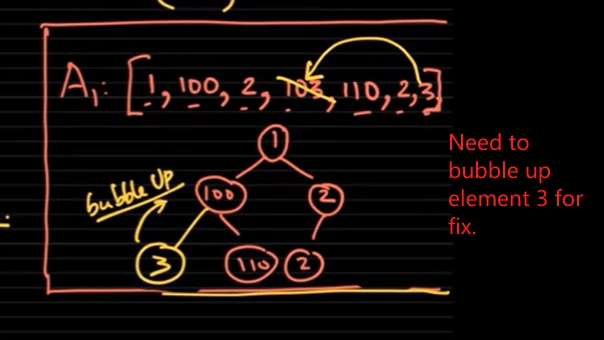 A1: [1, 100, 2, 103, 110, 2, 3]
1
bubble up
100
2
3
110
2
Need to
bubble up
element 3 for
fix.